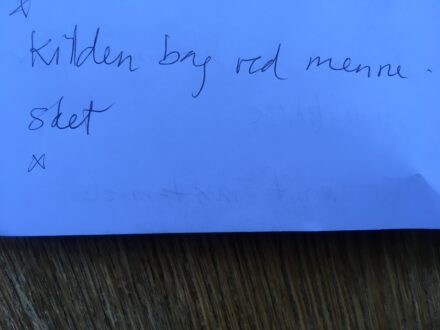 *
Kilden bag ved menne-
sket
*